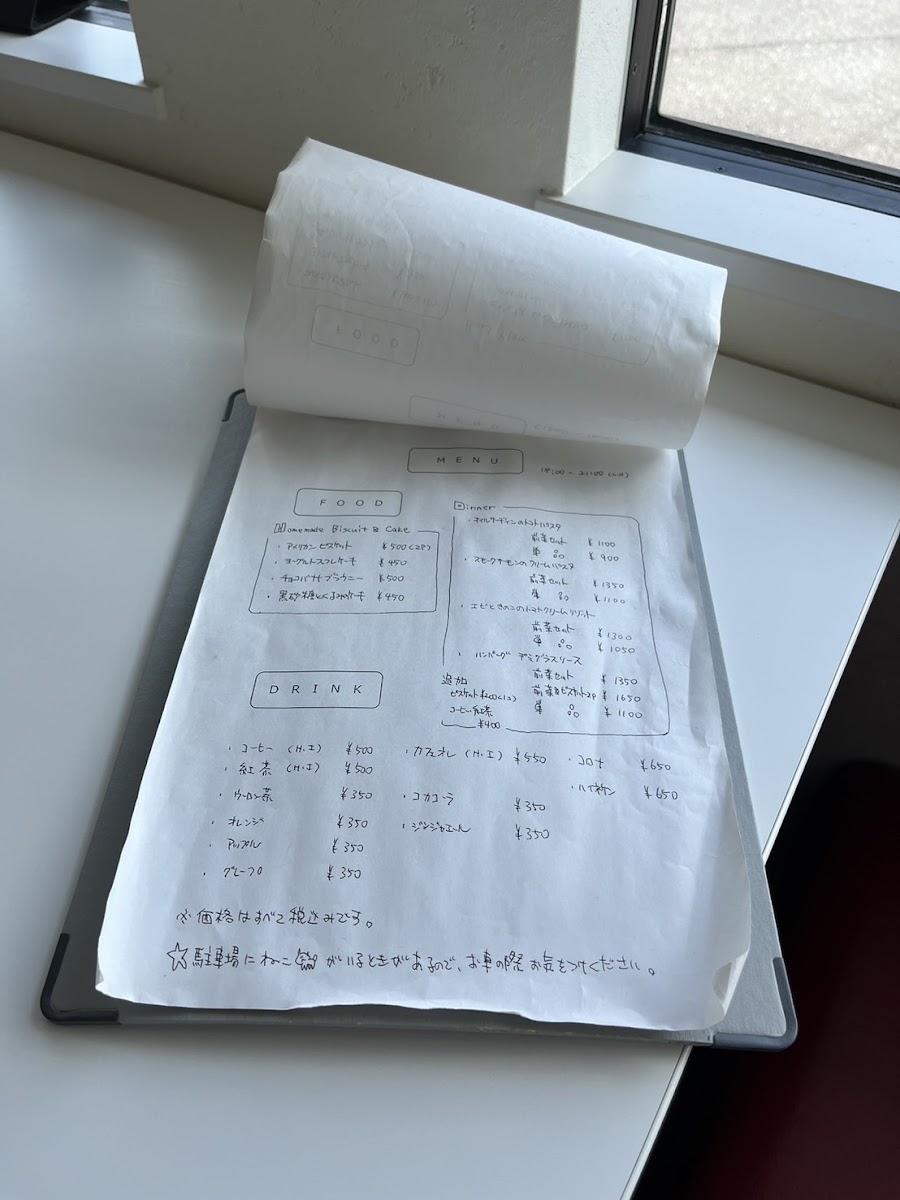 MENU
FOOD
Homemade Biscuit & Cake
・アメリカンビスケット ¥500(2P)
・ヨーグルトスフレケーキ ¥450
・チョコバナナブラウニー ¥500
・黒砂糖とくるみのケーキ ¥450
Dinner
・オイルサーディンのトマトパスタ
前菜セット ¥1100
単品 ¥900
・スモークサーモンのクリームパスタ
前菜セット ¥1350
単品 ¥1100
・エビときのこのトマトクリームリゾット
前菜セット ¥1300
単品 ¥1050
・ハンバーグ デミグラスソース
前菜セット ¥1350
前菜&ビスケット2P ¥1650
単品 ¥1100
追加
ビスケット ¥200(1コ)
コーヒー・紅茶
¥400
DRINK
・コーヒー (H.I) ¥500
・紅茶 (H.I) ¥500
・ウーロン茶 ¥350
・オレンジ ¥350
・アップル ¥350
・グレープ ¥350
・カフェオレ (H.I) ¥550
・コカコーラ ¥350
・ジンジャエール ¥350
・コロナ ¥650
・ハイネケン ¥650
※価格はすべて税込みです。
☆駐車場にねこがいるときがあるので、お車の際お気をつけください。